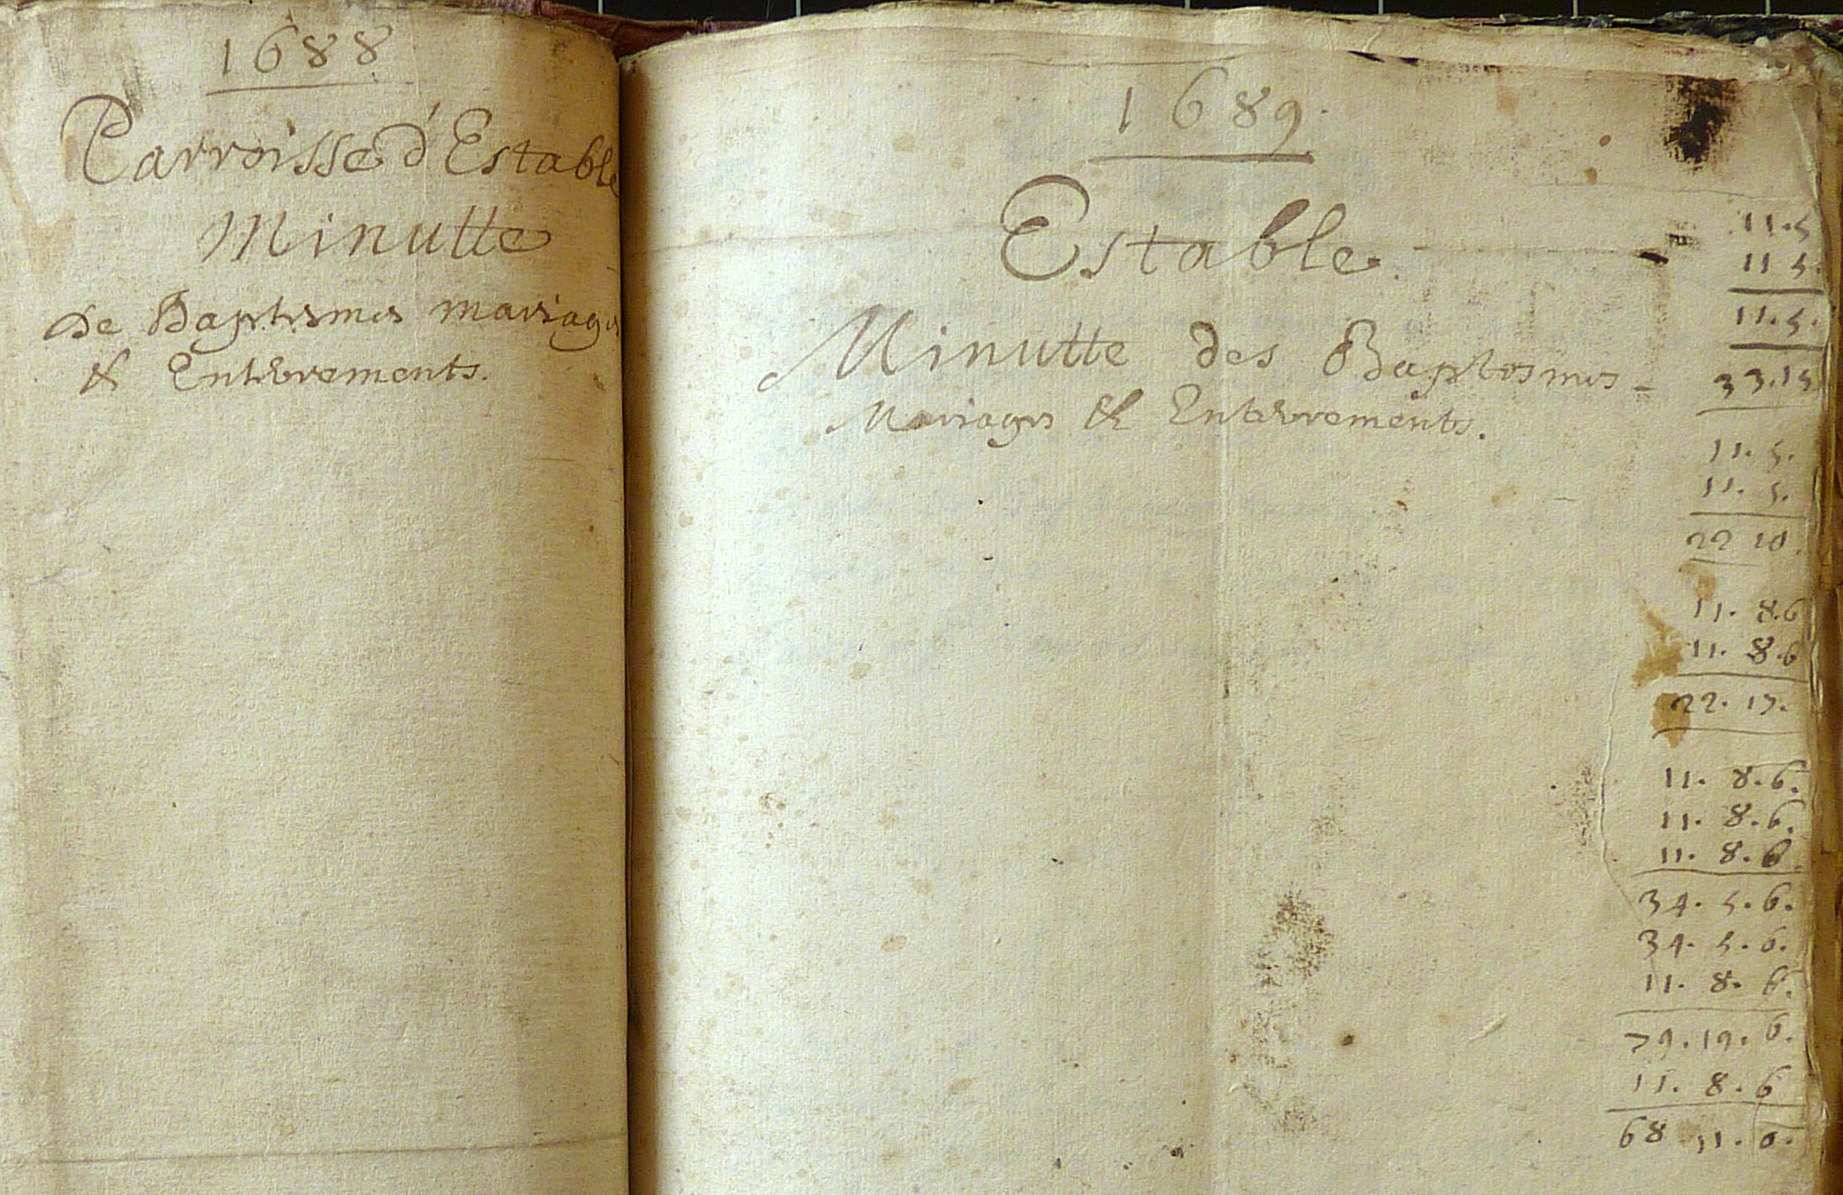 1688
Parroisse d'Estable
Minutte
de Baptesmes mariages
& Enterrements.
1689.
Estable.
Minutte des Baptesmes
Mariages & Enterrements.
11.5
11 5.
11.5.
33.15
11. 5.
11. 5.
22 10.
11. 8.6
11. 8.6
22. 17.
11. 8.6.
11. 8.6.
11. 8.6.
34. 5.6.
34. 5.6.
11. 8. 6.
79.19.6.
11. 8.6
68 11.0.